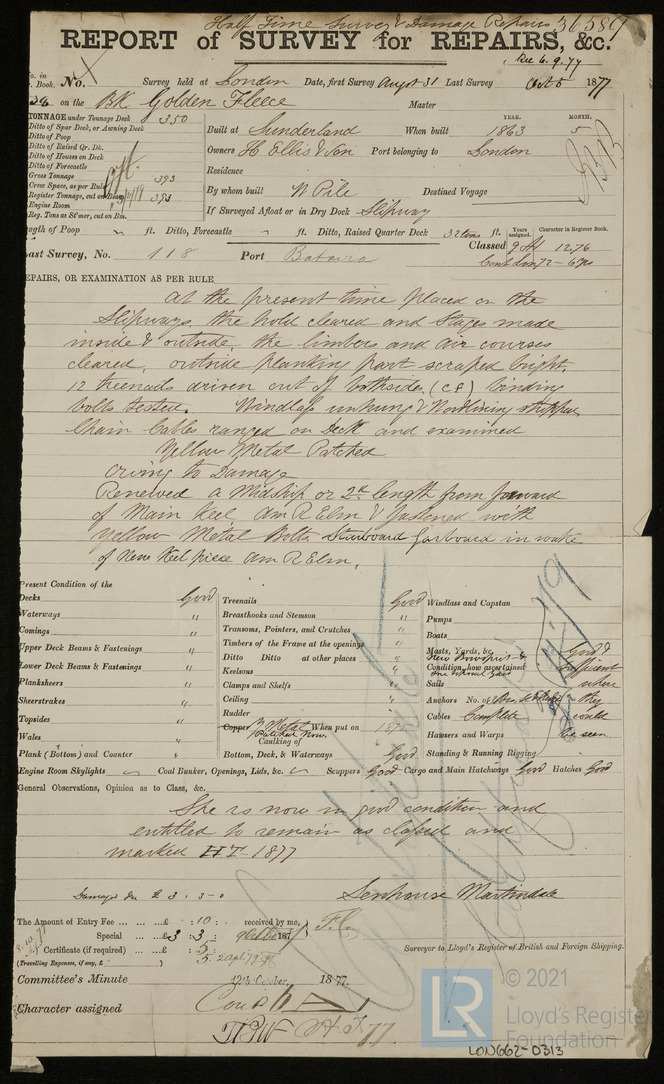 Half Time Survey & Damage Repairs 36589
REPORT of SURVEY for REPAIRS, &c.
Rec 6.9.77
No. in
Book. No. Survey held at London Date, first Survey Augst 31 Last Survey Oct 5 1877
on the BK Golden Fleece Master
TONNAGE under Tonnage Deck 350
Ditto of Spar Deck, or Awning Deck
Ditto of Poop
Ditto of Raised Qr. Dk.
Ditto of Houses on Deck
Ditto of Forecastle
Gross Tonnage 393
Crew Space, as per Rule
Register Tonnage, cut on Beam 393
Engine Room
Reg. Tons as St'mer, cut on Bm.
YEAR. MONTH.
Built at Sunderland When built 1863 5
Owners H Ellis & Son Port belonging to London
Residence
By whom built W Pile Destined Voyage
If Surveyed Afloat or in Dry Dock Slipway
ngth of Poop ft. Ditto, Forecastle ft. Ditto, Raised Quarter Deck ft. Years assigned. Character in Register Book.
ast Survey, No. 118 Port Batavia Classed 9 A1 12,76
Cont Lon 72 - 6yrs
EPAIRS, OR EXAMINATION AS PER RULE
At the present time placed on the
Slipways, the hold cleared and Stages made
inside & outside, the limbers and air courses
cleared, outside planking part scraped bright,
12 treenails driven out of bothsides, (CF) binding
bolts tested. Windlass unhung & Woodlining stripped
Chain Cables ranged on Deck and examined
Yellow Metal Patched
Owing to Damage
Renewed a Midship or 2d length from forward
of Main Keel Am R Elm & fastened with
Yellow Metal Bolts Starboard garboard in wake
of New Keel piece Am R Elm.
Present Condition of the
Decks Good
Waterways "
Comings "
Upper Deck Beams & Fastenings "
Lower Deck Beams & Fastenings "
Planksheers "
Sheerstrakes "
Topsides "
Wales "
Plank (Bottom) and Counter "
Treenails Good
Breasthooks and Stemson "
Transoms, Pointers, and Crutches "
Timbers of the Frame at the openings "
Ditto Ditto at other places "
Keelsons "
Clamps and Shelfs "
Ceiling "
Rudder "
Copper Y Metal When put on
Patched Now
Caulking of
Bottom, Deck, & Waterways Good
Windlass and Capstan
Pumps
Boats
Masts, Yards, &c.
Condition, how ascertained
Sails
Anchors No. of
Cables Complete
Hawsers and Warps
Standing & Running Rigging
Good &
sufficient
where
they
could
be seen
Engine Room Skylights Coal Bunker, Openings, Lids, &c. Scuppers Good Cargo and Main Hatchways Good Hatches Good
General Observations, Opinion as to Class, &c.
She is now in good condition and
entitled to remain as classed and
marked HT 1877
Damage Fee £ 3. 3-0
Senhouse Martindale
The Amount of Entry Fee ... ... ...£ :10: received by me,
Special ... ...£ 3 : 3 :
Certificate (if required) ... : 5 :
(Travelling Expenses, if any, £ )
Surveyor to Lloyd's Register of British and Foreign Shipping.
Committee's Minute 12th October, 1877.
Character assigned
© 2021
LR
Lloyd's Register
Foundation
LON662-0313